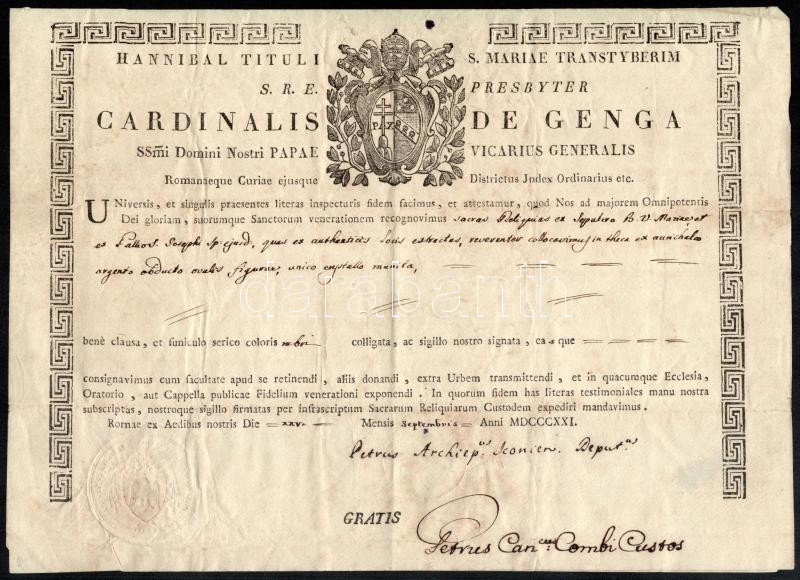 HANNIBAL TITULI S. MARIAE TRANSTYBERIM
S. R. E. PRESBYTER
CARDINALIS DE GENGA
SSm̃i Domini Nostri PAPAE VICARIUS GENERALIS
Romanaeque Curiae ejusque Districtus Judex Ordinarius etc.
UNiversis, et singulis praesentes literas inspecturis fidem facimus, et attestamur, quod Nos ad majorem Omnipotentis
Dei gloriam, suorumque Sanctorum venerationem recognovimus sacras Reliquias ex Sepulcro B. V. Mariae et
ex Pallio S. Josephi Sp: ejusd., quas ex authenticis locis extractas, reverenter collocavimus in theca ex aurichalco
argento obducto ovalis figurae, unico crystallo munita,
benè clausa, et funiculo serico coloris rubri colligata, ac sigillo nostro signata, eas que
consignavimus cum facultate apud se retinendi, aliis donandi, extra Urbem transmittendi, et in quacumque Ecclesia,
Oratorio, aut Cappella publicae Fidelium venerationi exponendi. In quorum fidem has literas testimoniales manu nostra
subscriptas, nostroque sigillo firmatas per infrascriptum Sacrarum Reliquiarum Custodem expediri mandavimus.
Romae ex Aedibus nostris Die Mensis Septembris Anni MDCCCXXI.
Petrus Archiep.us Iconien. Deput.us
GRATIS
Petrus Can.cus Combi Custos
darabanth